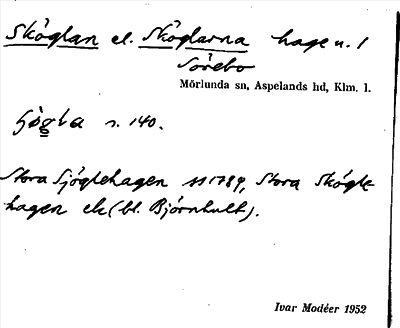 Skôglan el. Skôglarna hage u. 1
Sörebo
Mörlunda sn, Aspelands hd, Klm. l.
s. 140.
Stora Sjöglehagen 1789, Stora Skögle-
hagen ek (bl. Björnhult).
Ivar Modéer 1952